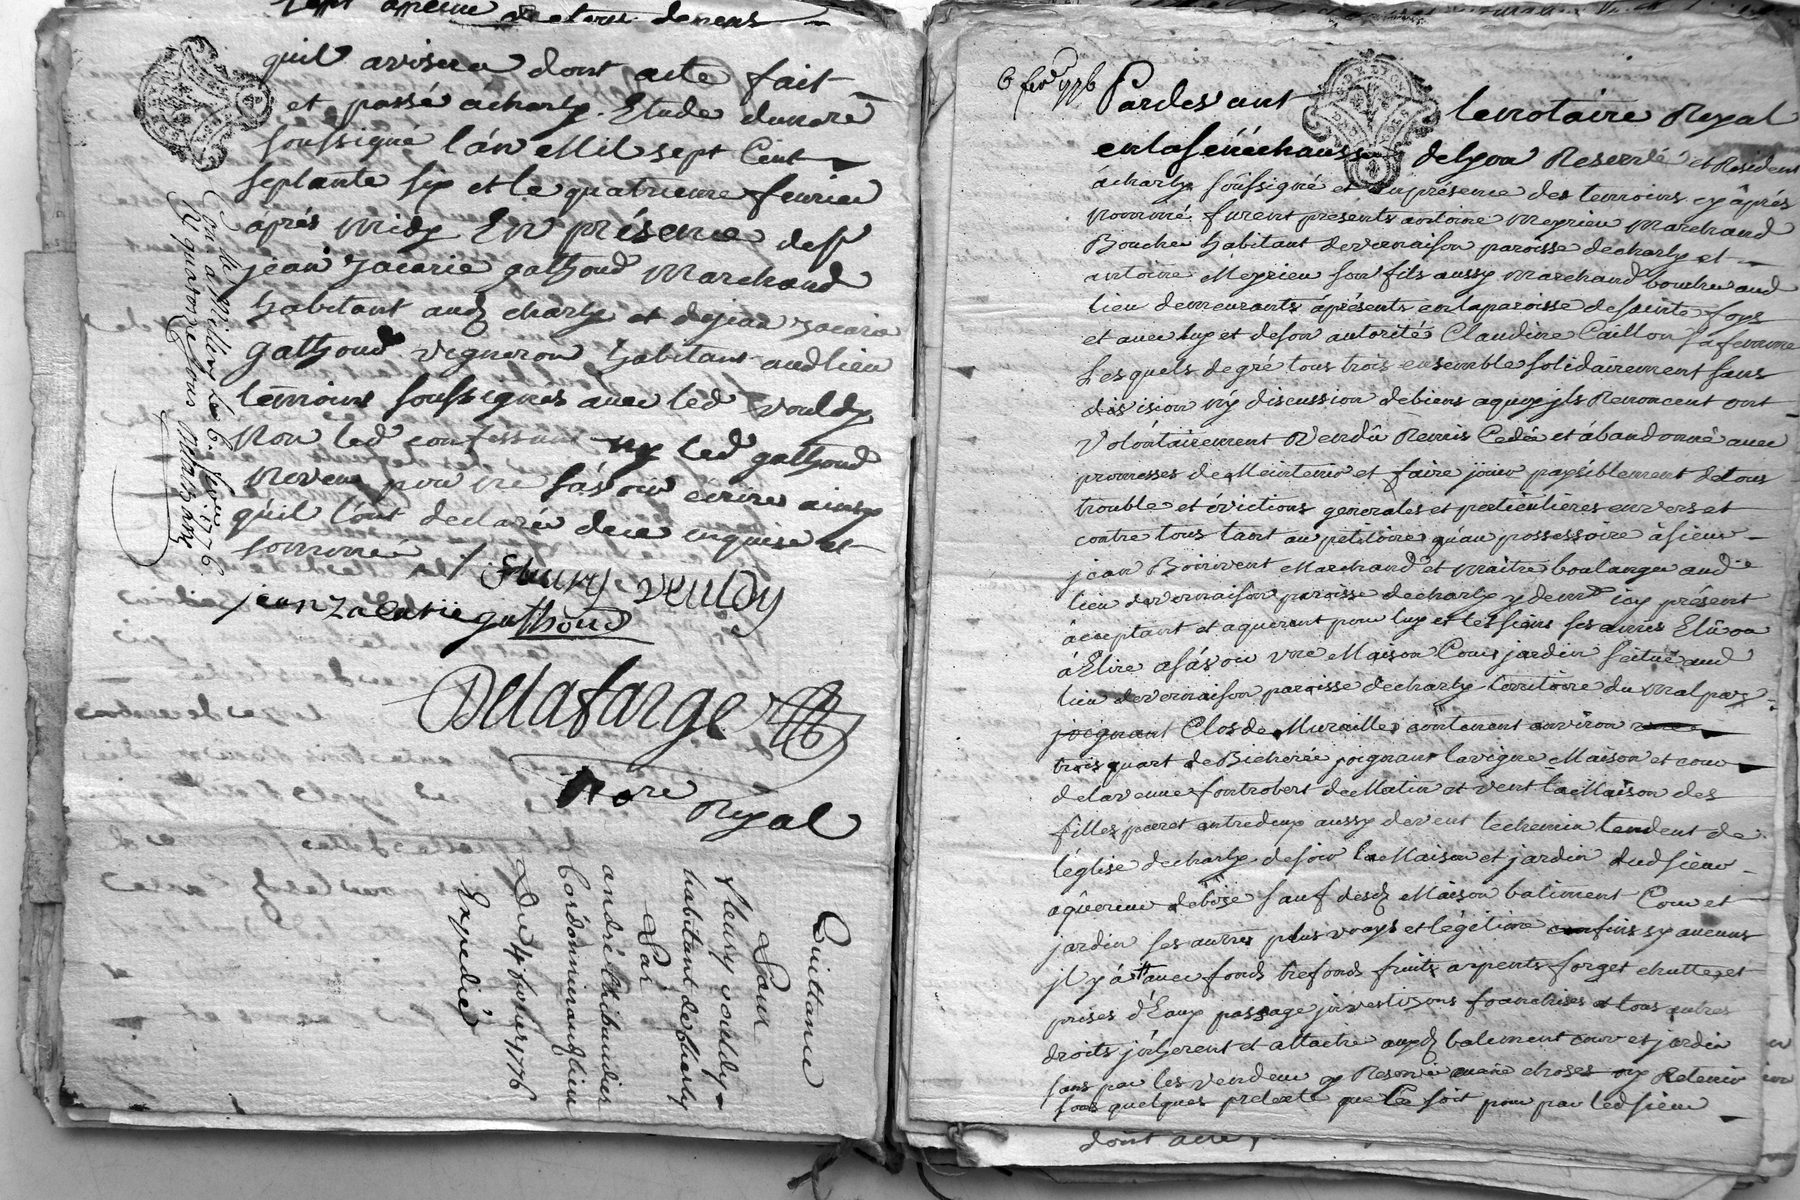 quil avisera dont acte fait
et passé a charly Etude dunore
soussigné lan Mil sept Cent
septante six et le quatrieme fevrier
aprés midy En présence de sr
jean Zacarie gathoud Marchand
habitant audt charly et de jean Zacarie
gathoud vigneron habitant aud lieu
témoins soussignés avec led vouldy
Non led confessant ny led gathoud
Neveu pour ne sávoir ecrire ainsy
quil l'ont declaré de ce enquis et
sommé /
fleury vculdy
jean zacarie gathoud
Delafarge
Nore Royal
Conlé a Millery Le 6. fevr. 1776.
R quatorze sous Delafarge
Quittance
Pour
fleury vouldy
habitant de charly
Par
andré thibaudier
Cordonnier audt lieu
Du 4 fevrier 1776
Expedié
6 fevr 1776
Pardevant le notaire Royal
en la sénéchaussé de Lyon Reservé et Resident
á charly soussigné et en présence des temoins cy áprés
nommé furent présents antoine Meyrieu Marchand
Boucher habitant de vernaison paroisse de charly et
antoine Meyrieu son fils aussy Marchand boucher aud
lieu demeurants áprésents en la paroisse de sainte foys
et avec luy et de son autorité Claudine Caillon sa femme
Lesquels de gré tous trois ensemble solidairement sans
division ny discussion de biens aquoy jls Renoncent ont
Volontairement Vendû Remis Cedée et ábandonné avec
promesses de Meintenir et faire jouir paysiblement de tous
trouble et évictions generales et particulières envers et
contre tous tant au pétitoire qu'au possessoire á sieur
jean Boirivent Marchand et Maitre boulanger aud
lieu de vernaison paroisse de charly y demt icy présent
ácceptant et aquerant pour luy et les siens ses amis Elû ou
á Elire asávoir une Maison Cour jardin scitué aud
lieu de vernaison paroisse de charly territoire du Malpas
joignant Clos de Murailles contenant environ
trois quart de Bicherée joignant la vigne Maison et cour
de la veuve fontrobert de Matin et vent la Maison des
filles entredeux aussy de vent le chemin tendent de
l'église de charly de soir la Maison et jardin dud sieur
áquereur de bise sauf desd Maison batiment Cour et
jardin ses autres plus vrays et légitime confins sy aucuns
jl y á avec fonds tréfonds fruits arpents forget chutte et
prises d'Eaux passage jnvestizons franchises et tous autres
droits jnhérent et attaché auxd batiment cour et jardin
sans par les vendeur y Reservé aucune choses ny Retenir
sous quelques pretexte que Ce soit pour par led sieur
dont acte,